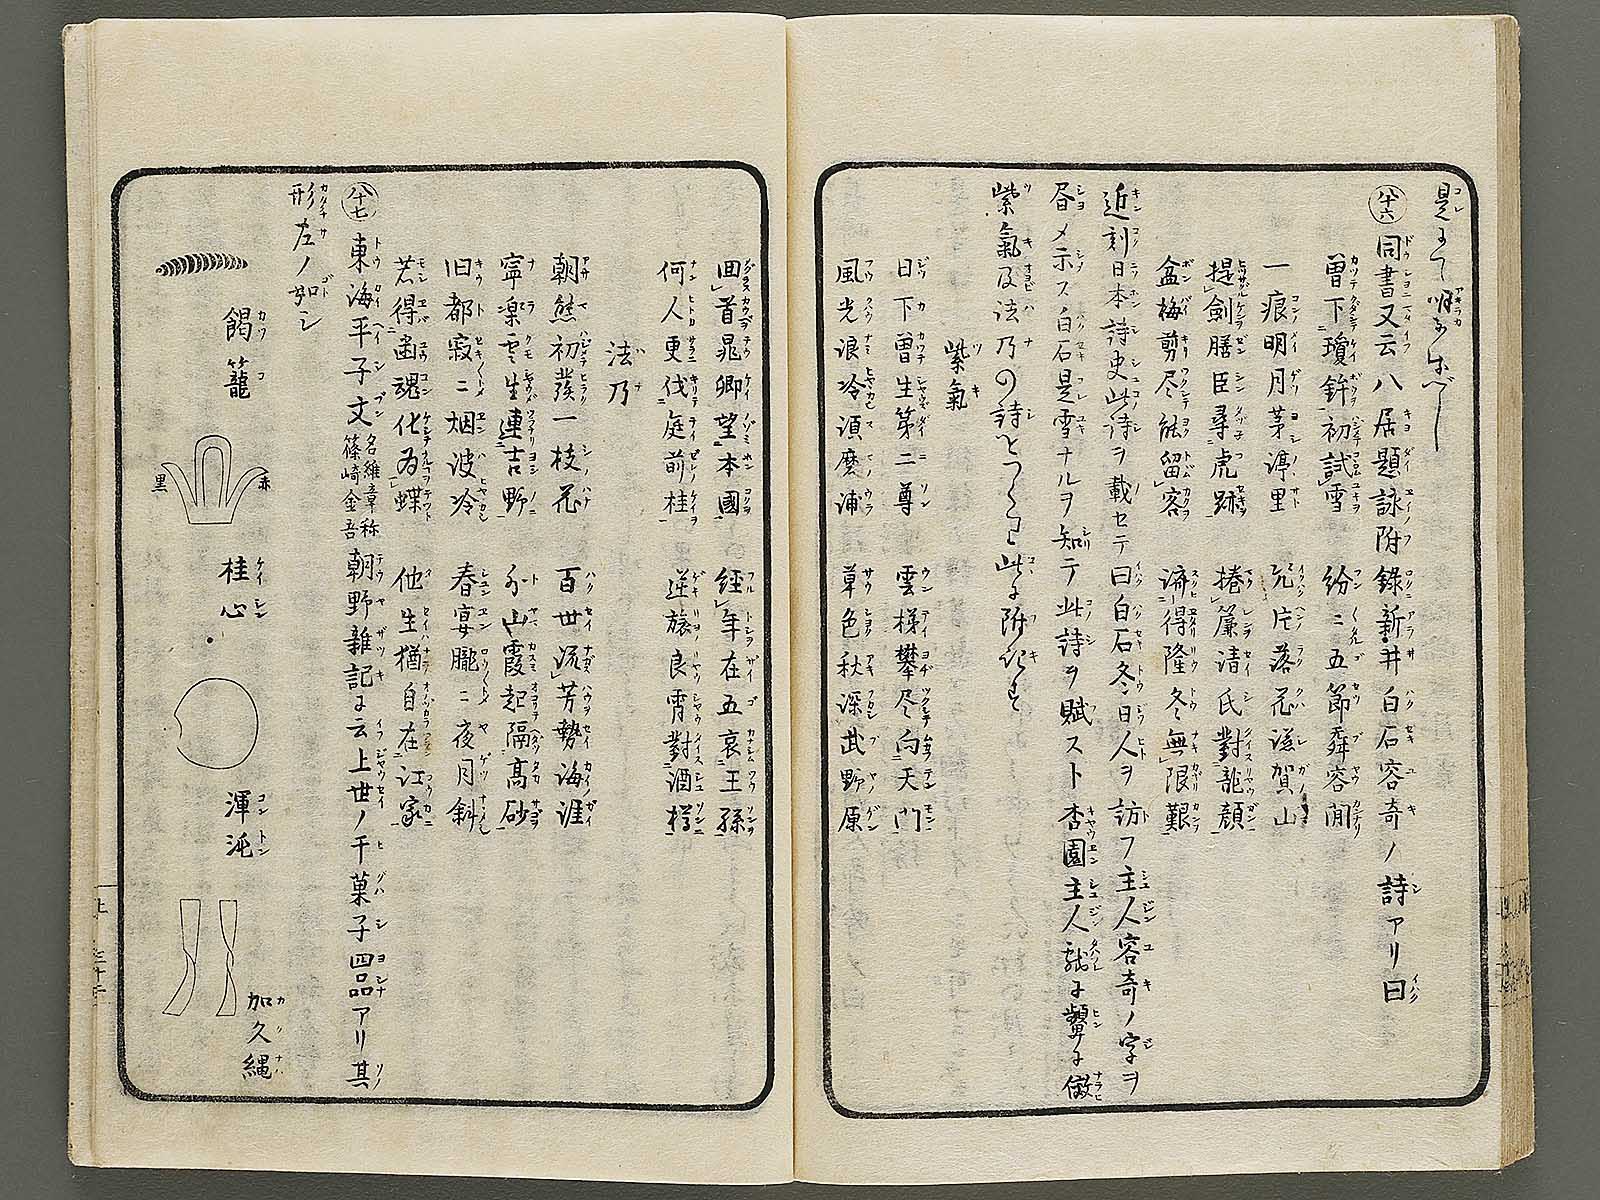 是よて明なるべし
八十六 同書又云八居題詠附錄新井白石容奇ノ詩アリ曰
曽下瓊鉾初試雪 紛〻五節舞容閒
一痕明月茅渟里 几片落花滋賀山
提劍膳臣尋虎跡 捲簾清氏對龍顔
盆梅剪尽能留客 濟得隆冬無限艱
近刻日本詩史此詩ヲ載セテ曰白石冬日人ヲ訪フ主人容奇ノ字ヲ
昼メ示ス白石是雪ナルヲ知テ此詩ヲ賦スト杏園主人戯に顰に倣
紫氣及法乃の詩をつくる此に附記す
紫氣
日下曽生第二尊 雲梯攀尽向天門
風光浪冷須麽浦 草色秋深武野原
回首晁卿望本國 經年在五哀王孫
何人更伐庭前桂 逆旅良宵對酒樽
法乃
朝熊初發一枝花 百世流芳勢海涯
寧楽雲生連吉野 外山霞起隔高砂
旧都寂〻烟波冷 春宴朧〻夜月斜
若得幽魂化為蝶 他生猶自在江家
八十七 東海平子文 名維章称篠崎金吾 朝野雜記に云上世ノ干菓子四品アリ其
形左ノ如シ
餲籠
黒
赤
桂心
渾沌
加久縄